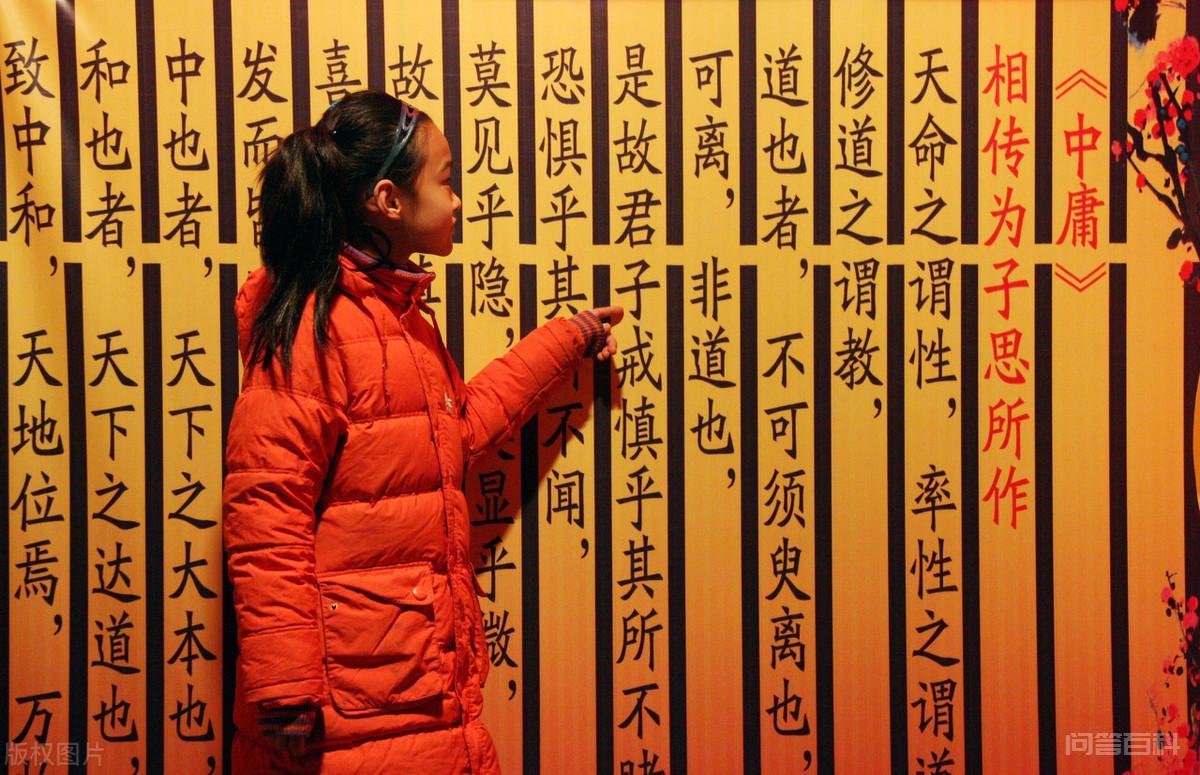 《中庸》
相传为子思所作
天命之谓性，率性之谓道
修道之谓教，
道也者，不可须臾离也，
可离，非道也，
是故君子戒慎乎其所不睹
恐惧乎其不闻，
莫见乎隐，显乎微，
故其
喜
发而
中也者，天下之大本也，
和也者，天下之达道也，
致中和，天地位焉，万
版权图片
问答百科